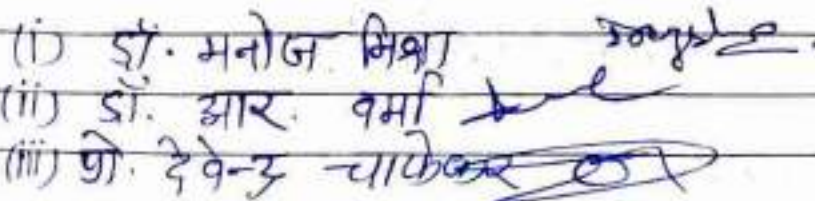 (i) डॉ. मनोज मिश्रा
(ii) डॉ. आर. वर्मा
(iii) प्रो. देवेन्द्र चाफेकर